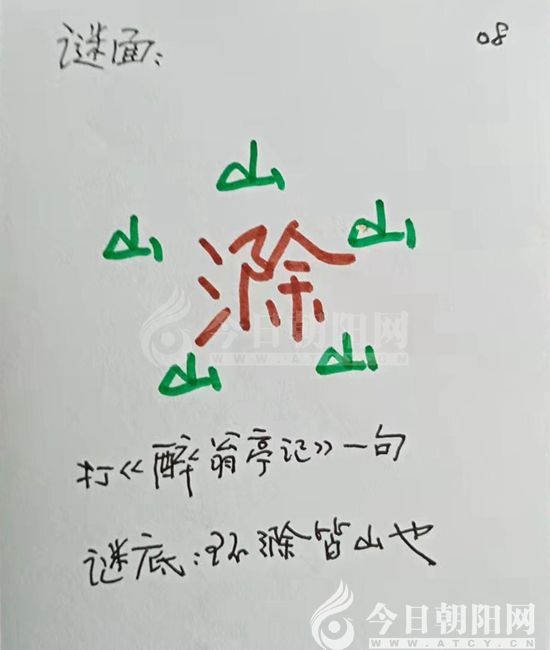 谜面： 08
山
山 滁 山
山 山
今日朝阳网
WWW.ATCY.CN
打《醉翁亭记》一句
谜底：环滁皆山也
今日朝阳网
WWW.ATCY.CN